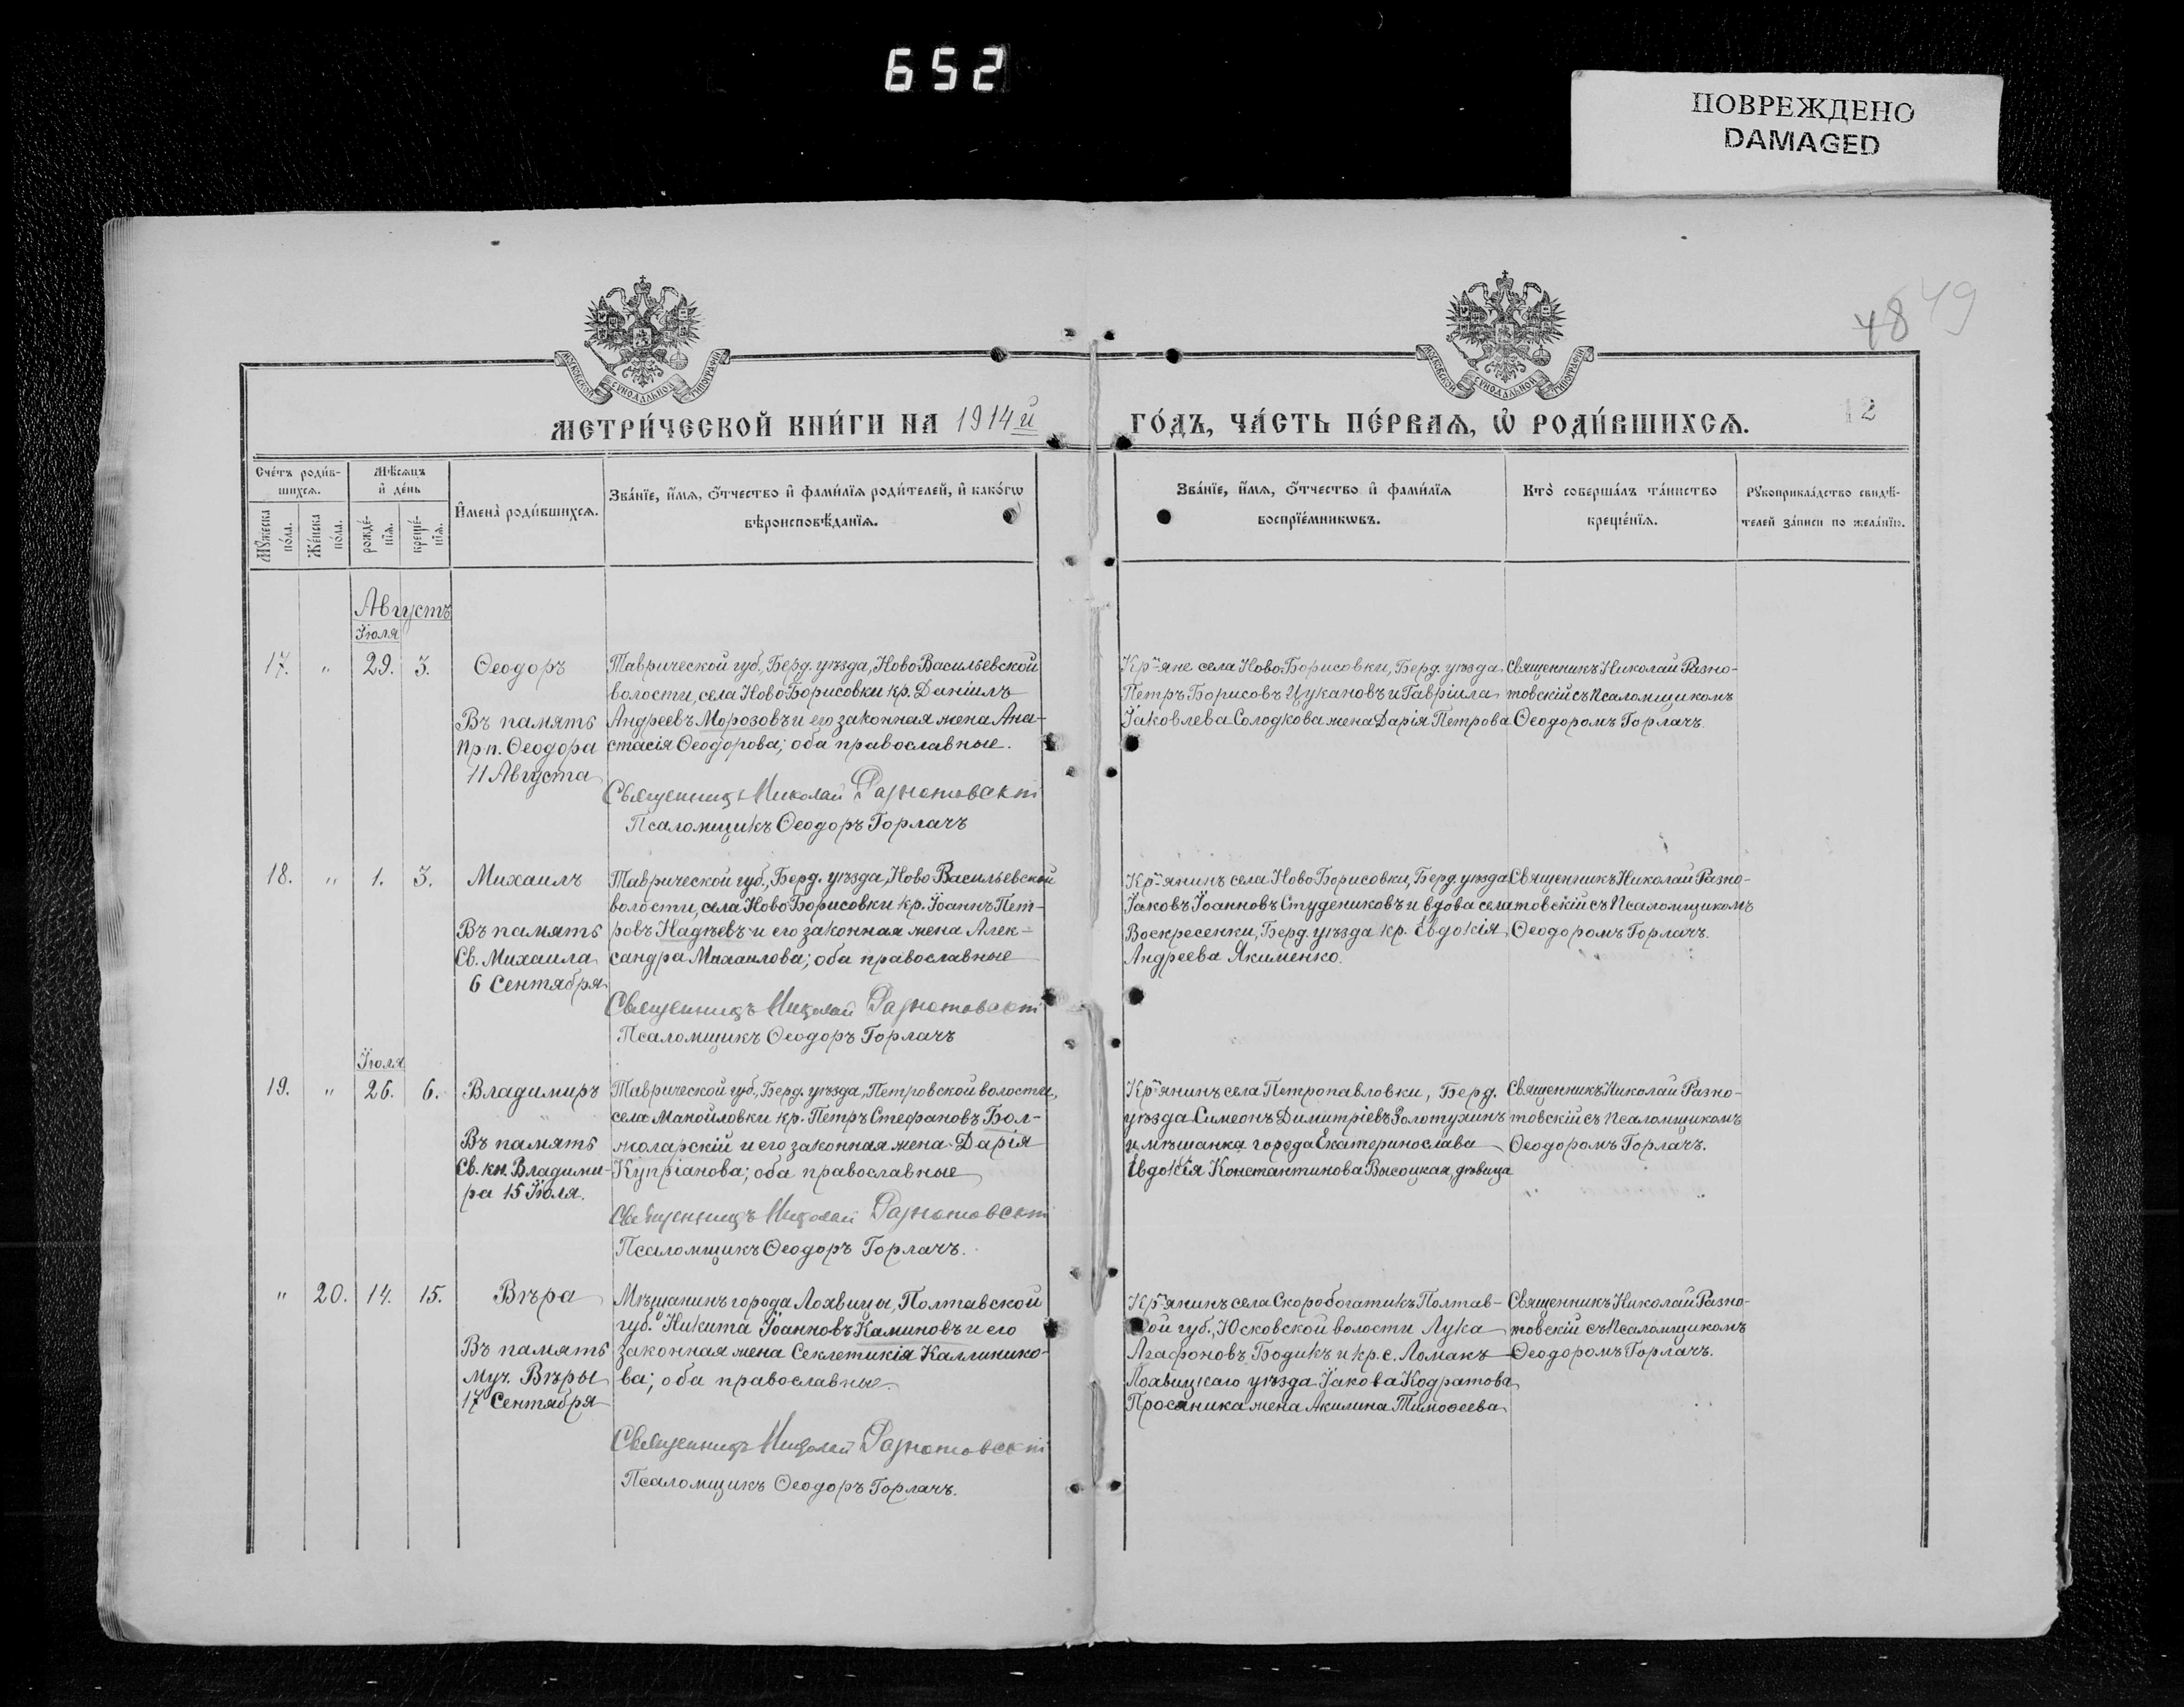 652
ПОВРЕЖДЕНО
DAMAGED
48 49
МОСКОВСКОЙ СѴНОДАЛЬНОЙ ТИПОГРАФІИ
МОСКОВСКОЙ СѴНОДАЛЬНОЙ ТИПОГРАФІИ
МЕТРИ́ЧЕСКОЙ КНИ́ГИ НА 1914й
ГО́ДЪ, ЧА́СТЬ ПЕ́РВАѦ, Ѡ҆ РОДИ́ВШИХСѦ.
12
Сче́тъ роди́в-
шихсѧ.
Мѣ́сѧцъ
и҆ де́нь
Мꙋ́жеска
по́ла.
Же́нска
по́ла.
рожде́-
нїѧ.
креще́-
нїѧ.
И҆мена̀ роди́вшихсѧ.
Зва́нїе, и҆́мѧ, ѻ҆́тчество и҆ фами́лїѧ роди́телей, и҆ како́гѡ
вѣроисповѣ́данїѧ.
Зва́нїе, и҆́мѧ, ѻ҆́тчество и҆ фами́лїѧ
воспрїе́мникѡвъ.
Кто̀ соверша́лъ та́инство
креще́нїѧ.
Рꙋкоприкла́дство свидѣ́-
телей за́писи по жела́нїю.
Августъ
Іюля
17. " 29. 3. Ѳеодоръ
Въ память
Прп. Ѳеодора
11 Августа
Таврической губ., Берд. уѣзда, Ново Васильевской
волости, села Ново Борисовки кр. Даніилъ
Андреевъ Морозовъ и его законная жена Ана-
стасія Ѳеодорова; оба православные.
Священникъ Николай Разнотовскій
Псаломщикъ Ѳеодоръ Горлачъ
Кр-яне села Ново-Борисовки, Берд. уѣзда
Петръ Борисовъ Цукановъ и Гавріила
Іаковлева Солодкова жена Дарія Петрова
Священникъ Николай Разно-
товскій съ Псаломщикомъ
Ѳеодоромъ Горлачъ.
18. " 1. 3. Михаилъ
Въ память
Св. Михаила
6 Сентября
Таврической губ., Берд. уѣзда, Ново Васильевской
волости, села Ново Борисовки кр. Іоаннъ Пет-
ровъ Надѣевъ и его законная жена Алек-
сандра Михаилова; оба православные
Священникъ Николай Разнотовскій
Псаломщикъ Ѳеодоръ Горлачъ
Кр-янинъ села Ново Борисовки, Берд. уѣзда
Іаковъ Іоанновъ Студениковъ и вдова села
Воскресенки, Берд. уѣзда кр. Евдокія
Андреева Якименко.
Священникъ Николай Разно-
товскій съ Псаломщикомъ
Ѳеодоромъ Горлачъ.
Іюля
19. " 26. 6. Владимиръ
Въ память
Св. кн. Владими-
ра 15 Іюля.
Таврической губ., Берд. уѣзда, Петровской волости,
села Манойловки кр. Петръ Стефановъ Бол-
жоларскій и его законная жена Дарія
Купріанова; оба православные
Священникъ Николай Разнотовскій
Псаломщикъ Ѳеодоръ Горлачъ.
Кр-янинъ села Петропавловки, Берд.
уѣзда Симеонъ Димитріевъ Золотухинъ
и мѣщанка города Екатеринослава
Евдокія Константинова Высоцкая, дѣвица
Священникъ Николай Разно-
товскій съ псаломщикомъ
Ѳеодоромъ Горлачъ.
" 20. 14. 15. Вѣра
Въ память
муч. Вѣры
17 Сентября
Мѣщанинъ города Лохвицы, Полтавской
губ. Никита Іоанновъ Каминовъ и его
законная жена Секлетикія Каллинико-
ва; оба православные.
Священникъ Николай Разнотовскій
Псаломщикъ Ѳеодоръ Горлачъ.
Кр-янинъ села Скоробогатикъ Полтав-
ской губ., Юсковской волости Лука
Агафоновъ Бодикъ и кр. с. Ломакъ
Лохвицкаго уѣзда Іакова Кодратова
Просяника жена Акилина Тимоѳеева
Священникъ Николай Разно-
товскій съ Псаломщикомъ
Ѳеодоромъ Горлачъ.